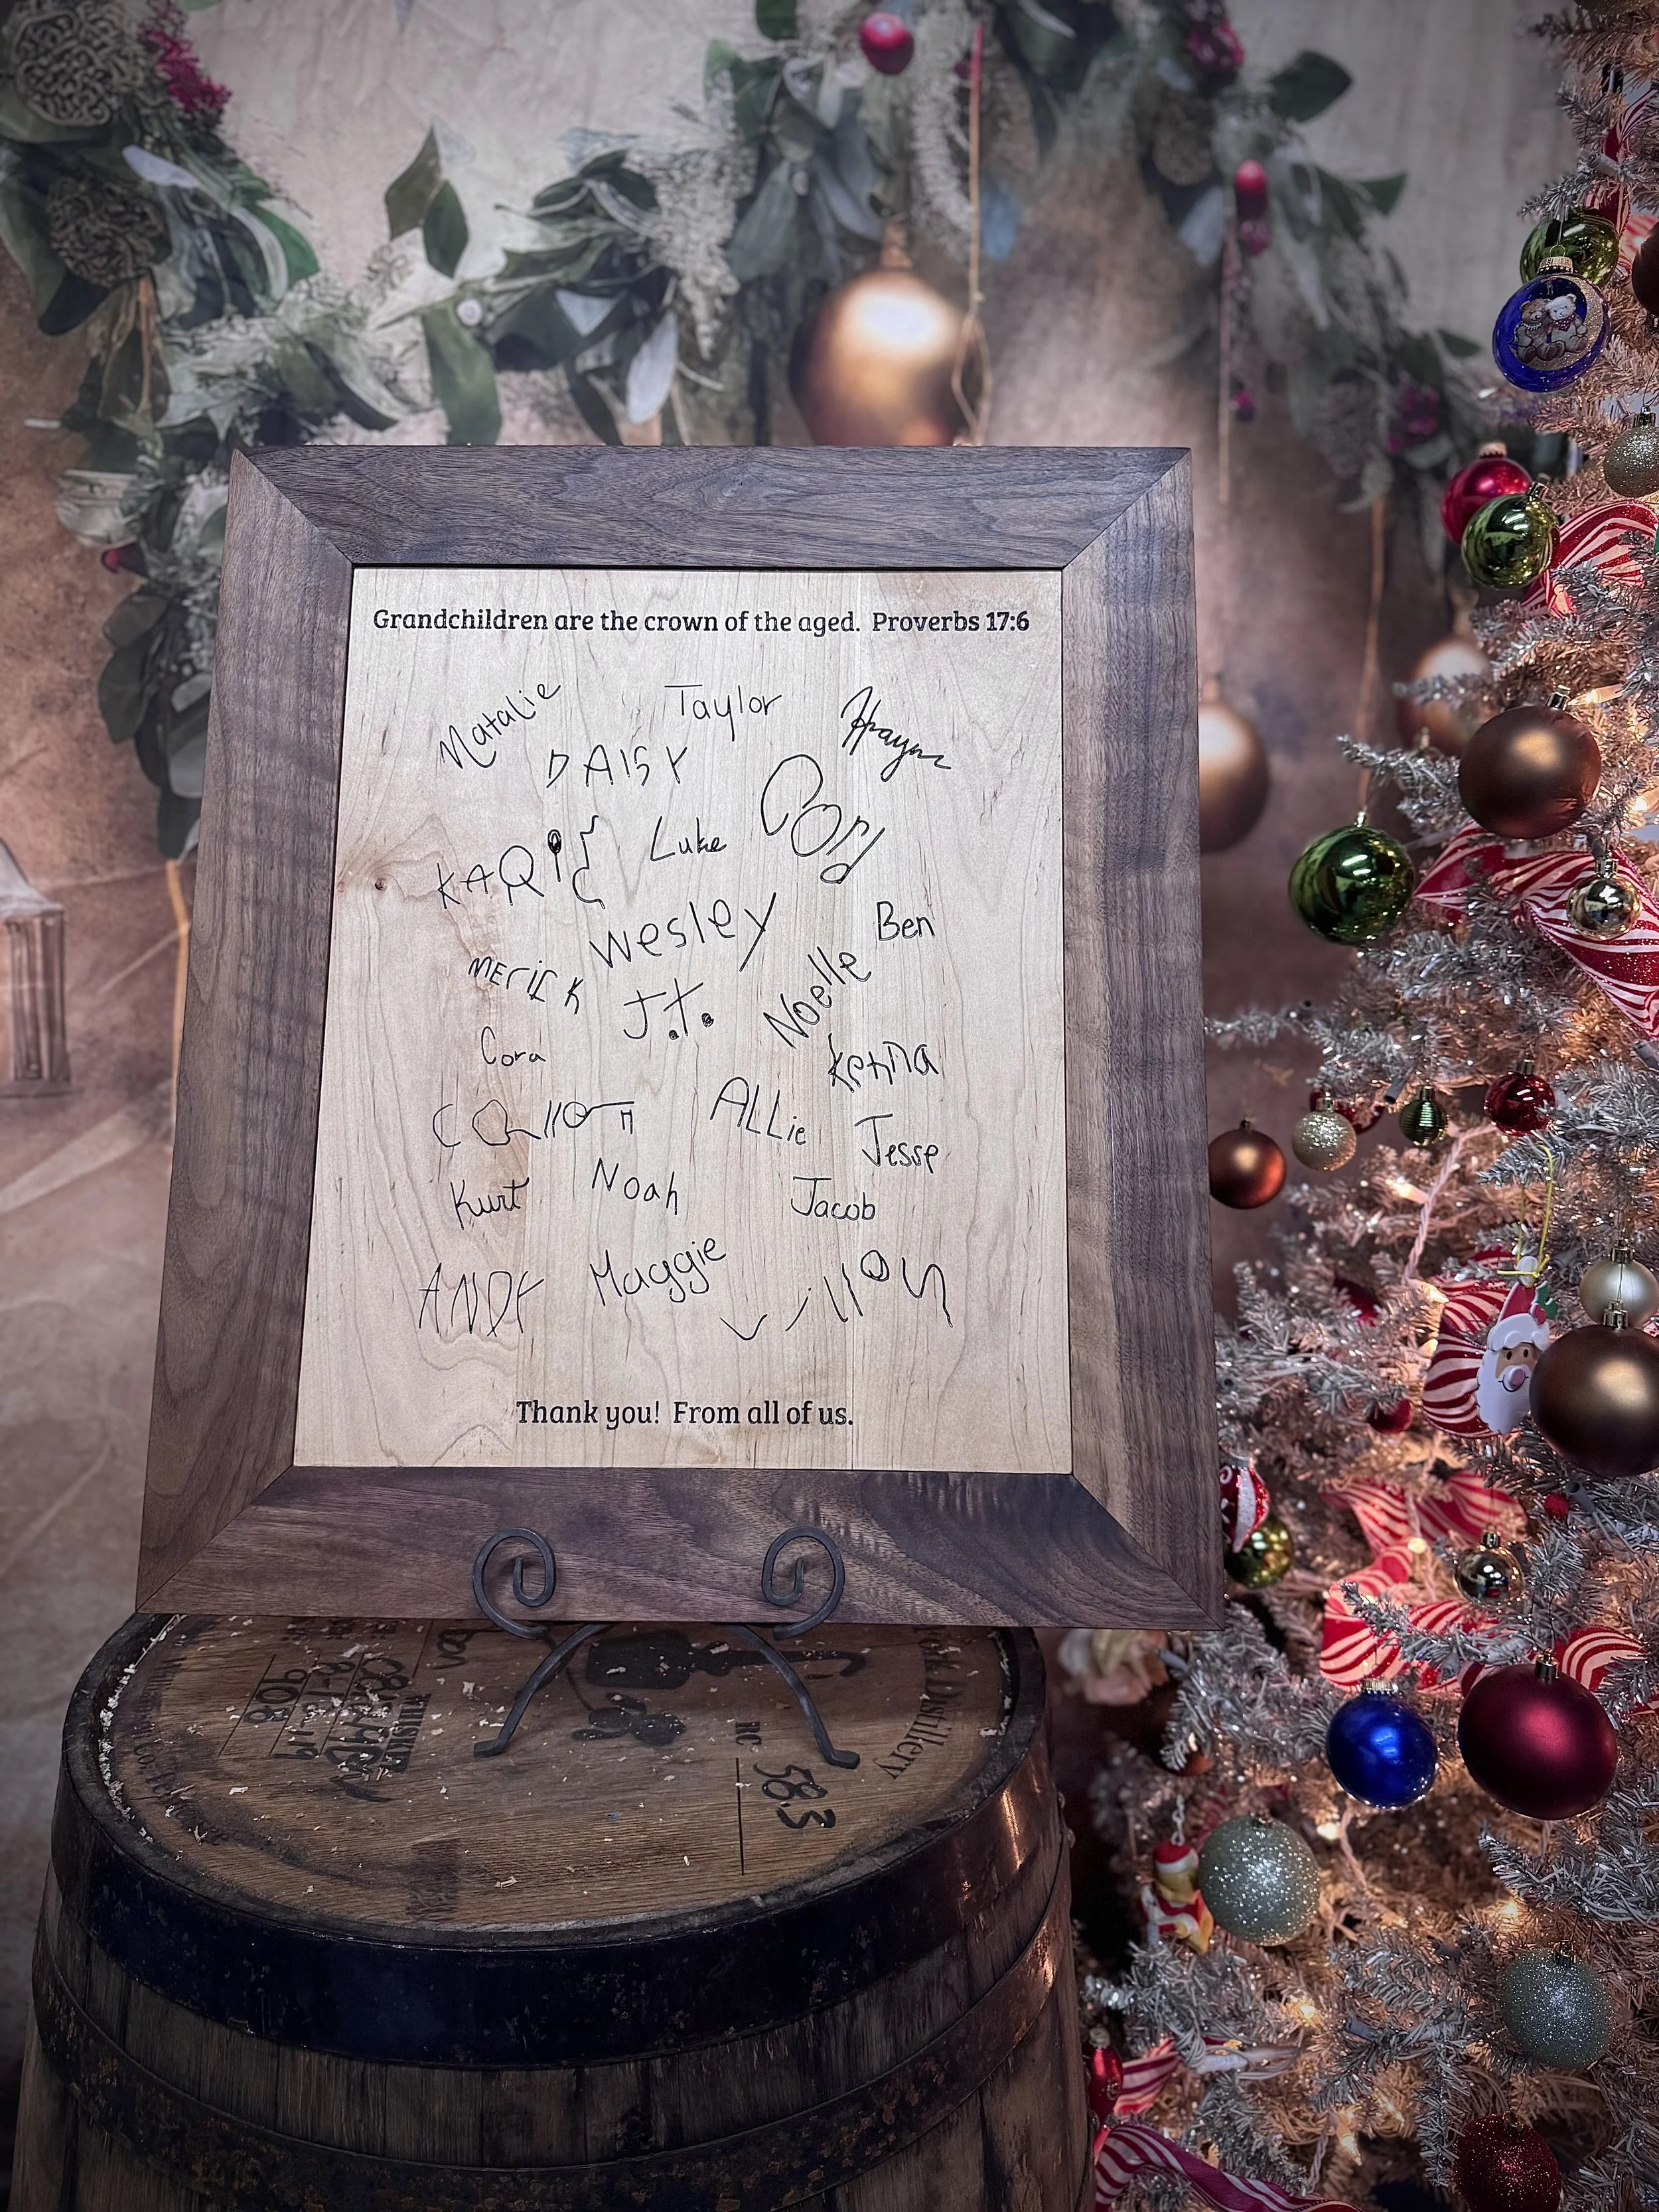 Grandchildren are the crown of the aged. Proverbs 17:6
Natalie
Taylor
DAISY
Luke
Wesley
Ben
MEriCK
J.T.
Noelle
Cora
Kenna
ALLie
Jesse
Kurt
Noah
Jacob
ANDY
Maggie
Thank you! From all of us.
Distillery
WHISKEY
RC 58.3
908